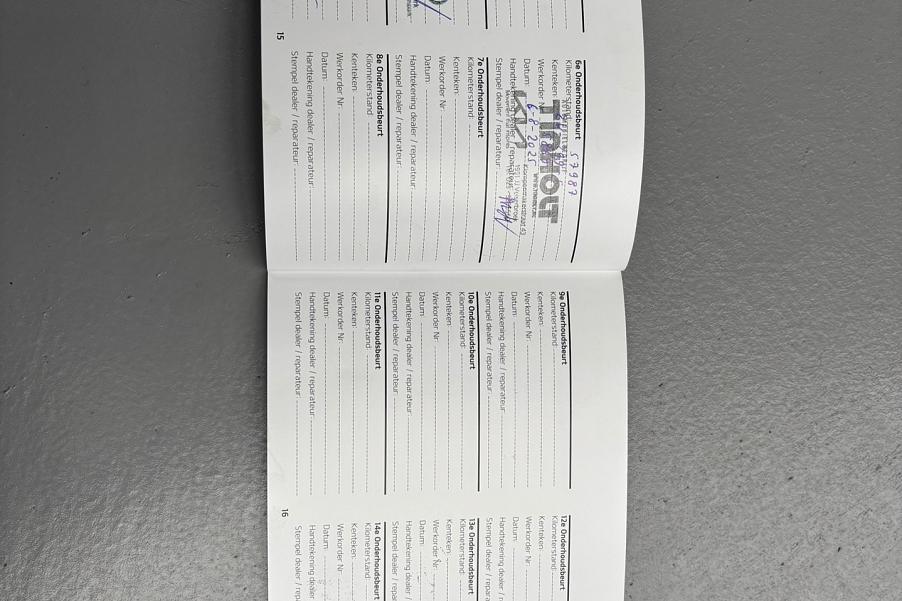 6e Onderhoudsbeurt
Kilometerstand: 57987
Kenteken:
Werkorder Nr:
Datum: 6-8-2025
Handtekening dealer / reparateur:
Stempel dealer / reparateur:
TINHOLT
7e Onderhoudsbeurt
Kilometerstand:
Kenteken:
Werkorder Nr:
Datum:
Handtekening dealer / reparateur:
Stempel dealer / reparateur:
8e Onderhoudsbeurt
Kilometerstand:
Kenteken:
Werkorder Nr:
Datum:
Handtekening dealer / reparateur:
Stempel dealer / reparateur:
15
9e Onderhoudsbeurt
Kilometerstand:
Kenteken:
Werkorder Nr:
Datum:
Handtekening dealer / reparateur:
Stempel dealer / reparateur:
10e Onderhoudsbeurt
Kilometerstand:
Kenteken:
Werkorder Nr:
Datum:
Handtekening dealer / reparateur:
Stempel dealer / reparateur:
11e Onderhoudsbeurt
Kilometerstand:
Kenteken:
Werkorder Nr:
Datum:
Handtekening dealer / reparateur:
Stempel dealer / reparateur:
16
12e Onderhoudsbeurt
Kilometerstand:
Kenteken:
Werkorder Nr:
Datum:
Handtekening dealer /
Stempel dealer /
13e Onderhoudsbeurt
Kilometerstand:
Kenteken:
Werkorder Nr:
Datum:
Handtekening dealer /
Stempel dealer /
14e Onderhoudsbeurt
Kilometerstand:
Kenteken:
Werkorder Nr:
Datum:
Handtekening dealer
Stempel dealer /